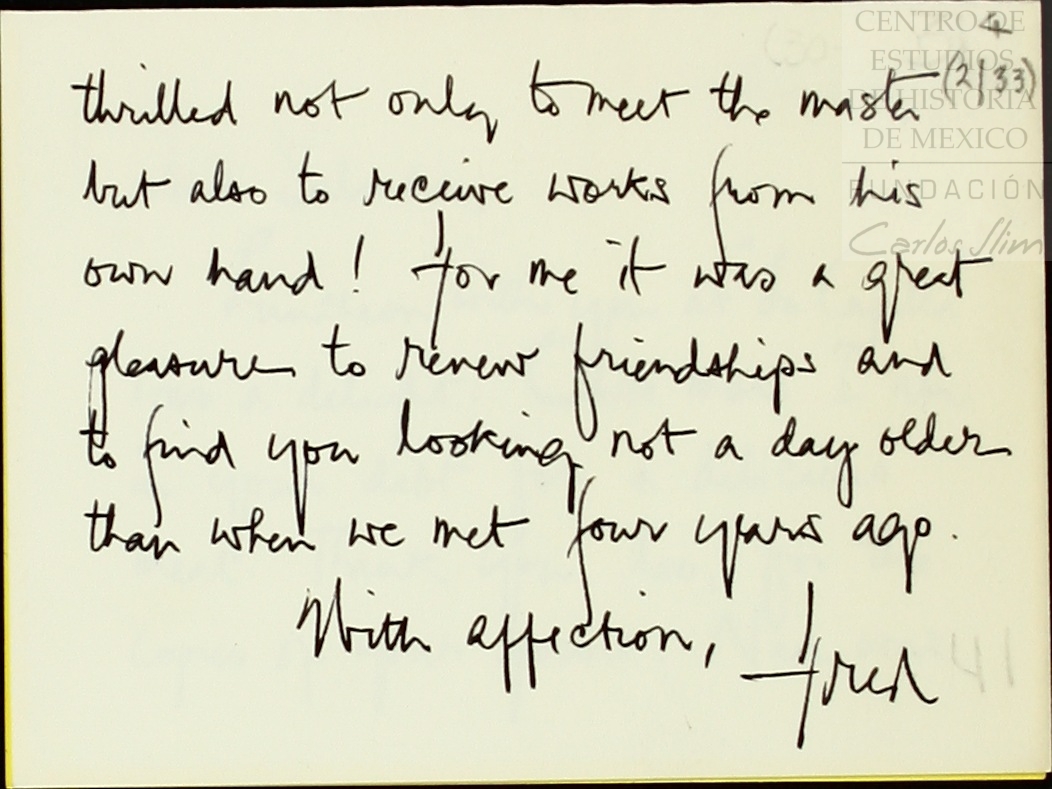 CENTRO DE
ESTUDIOS
DE HISTORIA
DE MEXICO
FUNDACIÓN
Carlos Slim
4
(2/33)
thrilled not only to meet the master
but also to receive works from his
own hand! For me it was a great
pleasure to renew friendships and
to find you looking not a day older
than when we met four years ago.
With affection, Fred
41